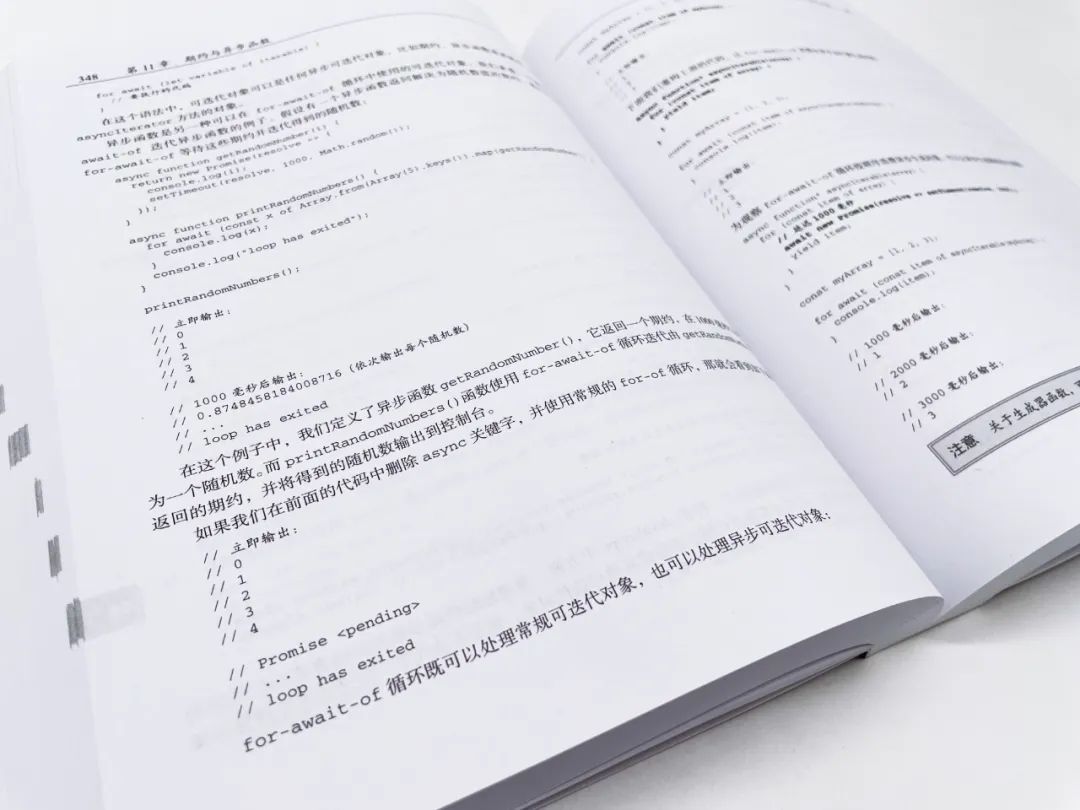 348 第11章 期约与异步函数
for await (let variable of iterable) {
// 要执行的代码
}
在这个语法中，可迭代对象可以是任何异步可迭代对象，比如期约、异步函数
asyncIterator 方法的对象。
异步函数是另一种可以在 for-await-of 循环中使用的可迭代对象。
await-of 迭代异步函数的例子。假设有一个异步函数返回解决为随机数
for-await-of 等待这些期约并迭代得到的随机数：
async function getRandomNumber(i) {
return new Promise(resolve => {
console.log(i);
setTimeout(resolve, 1000, Math.random());
});
}
async function printRandomNumbers() {
for await (const x of Array.from(Array(5).keys()).map(getRandomNumber
console.log(x);
}
console.log("loop has exited");
}
printRandomNumbers();
// 立即输出：
// 0
// 1
// 2
// 3
// 4
// 1000 毫秒后输出：
// 0.8748458184008716 (依次输出每个随机数)
// ...
// loop has exited
在这个例子中，我们定义了异步函数 getRandomNumber()，它返回一个期约，在 1000
为一个随机数。而 printRandomNumbers() 函数使用 for-await-of 循环迭代由
返回的期约，并将得到的随机数输出到控制台。
如果我们在前面的代码中删除 async 关键字，并使用常规的 for-of 循环，那就会看到
// 立即输出：
// 0
// 1
// 2
// 3
// 4
// Promise <pending>
// ...
// loop has exited
for-await-of 循环既可以处理常规可迭代对象，也可以处理异步可迭代对象：
yield item;
}
const myArray = [1, 2, 3];
for await (const item of
console.log(item);
}
// 立即输出：
// 1
// 2
// 3
为观察 for-await-of 循环
async function* asyncIterable(array) {
for (const item of array) {
// 延迟1000 毫秒
await new Promise(resolve => setTimeout(resolve,
yield item;
}
}
const myArray = [1, 2, 3];
for await (const item of asyncIterable(myArray)) {
console.log(item);
}
// 1000 毫秒后输出：
// 1
// 2000 毫秒后输出：
// 2
// 3000 毫秒后输出：
// 3
注意 关于生成器函数，